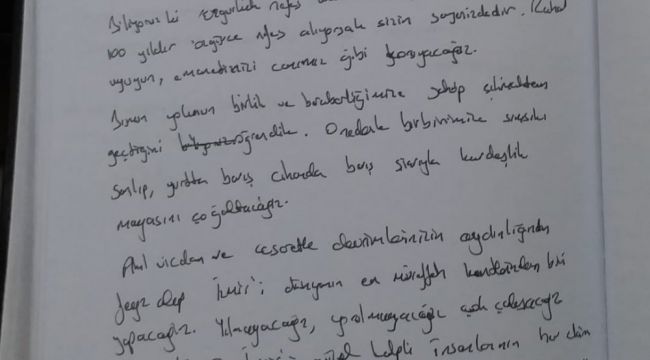 Biliyoruz ki özgürlük nefes
100 yıldır özgürce nefes alıyorsak sizin sayenizdedir. Rahat
uyuyun, emanetinizi canımız gibi koruyacağız.
Bunun yolunun birlik ve beraberliğimize sahip çıkmaktan
geçtiğini öğrendik. O nedenle birbirimize sımsıkı
sarılıp, yurtta barış cihanda barış şiarıyla kardeşlik
mayasını çoğaltacağız.
Akıl vicdan ve cesaretle devrimlerinizin aydınlığından
feyz alıp İzmir'i; dünyanın en müreffeh kentlerinden biri
yapacağız. Yılmayacağız, yorulmayacağız çok çalışacağız
güzel kalpli insanlarının her